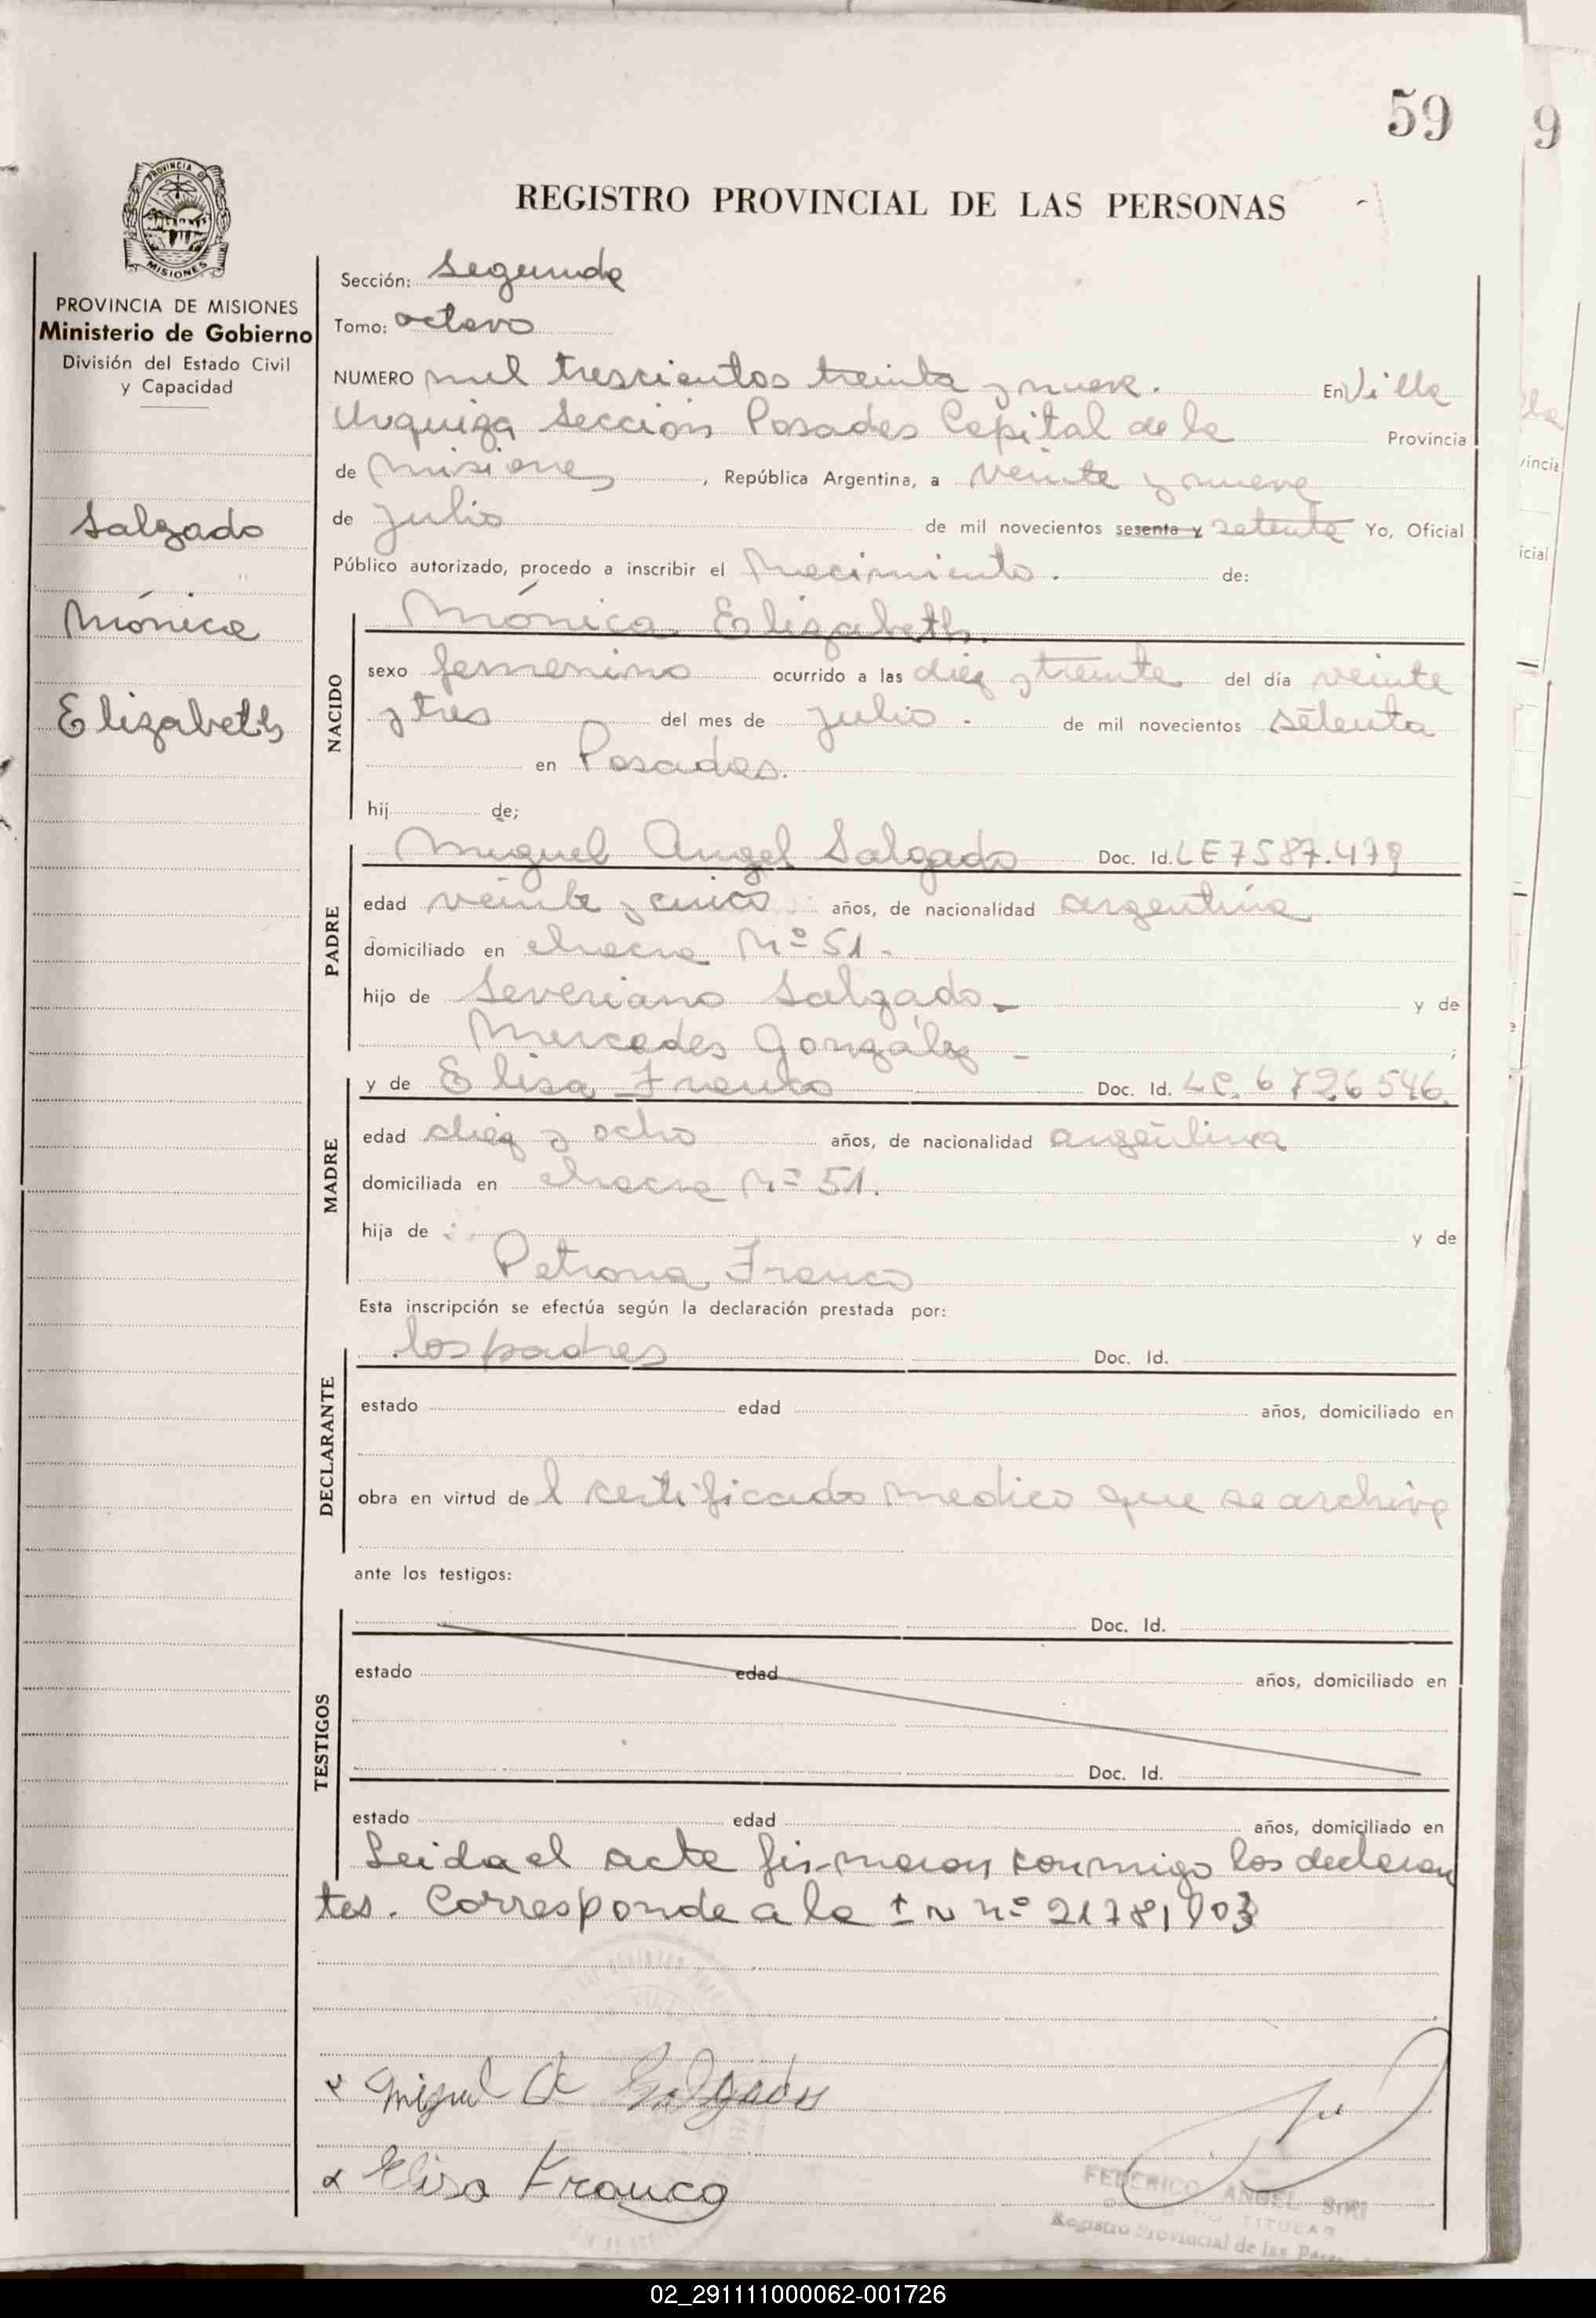 59
9
REGISTRO PROVINCIAL DE LAS PERSONAS
PROVINCIA DE
MISIONES
PROVINCIA DE MISIONES
Ministerio de Gobierno
División del Estado Civil
y Capacidad
Salgado
Mónica
Elizabeth
Sección: Segunda
Tomo: octavo
NUMERO mil trescientos treinta y nueve. En Villa
Urquiza Sección Posadas Capital de la Provincia
de Misiones, República Argentina, a veinte y nueve
de julio de mil novecientos sesenta y setenta Yo, Oficial
Público autorizado, procedo a inscribir el Nacimiento. de:
NACIDO
Mónica Elizabeth.
sexo femenino ocurrido a las diez y treinta del día veinte
y tres del mes de julio. de mil novecientos setenta
en Posadas.
hij de;
PADRE
Miguel Angel Salgado Doc. Id. LE 7587.479
edad veinte y cinco años, de nacionalidad argentina
domiciliado en chacra Nº 51-
hijo de Severiano Salgado- y de
Mercedes González - ;
MADRE
y de Elisa Franco Doc. Id. LC. 6726546.
edad diez y ocho años, de nacionalidad argentina
domiciliada en chacra Nº 51.
hija de y de
Petrona Franco
Esta inscripción se efectúa según la declaración prestada por:
DECLARANTE
los padres Doc. Id.
estado edad años, domiciliado en
obra en virtud de l certificado medico que se archiva
ante los testigos:
TESTIGOS
Doc. Id.
estado edad años, domiciliado en
Doc. Id.
estado edad años, domiciliado en
Leida el acta firmaron conmigo los declaran
tes. Corresponde a la nº 21781903
Miguel A Salgado
Elisa Franco
FEDERICO ANGEL
TITULAR
Registro Provincial de las
02_291111000062-001726